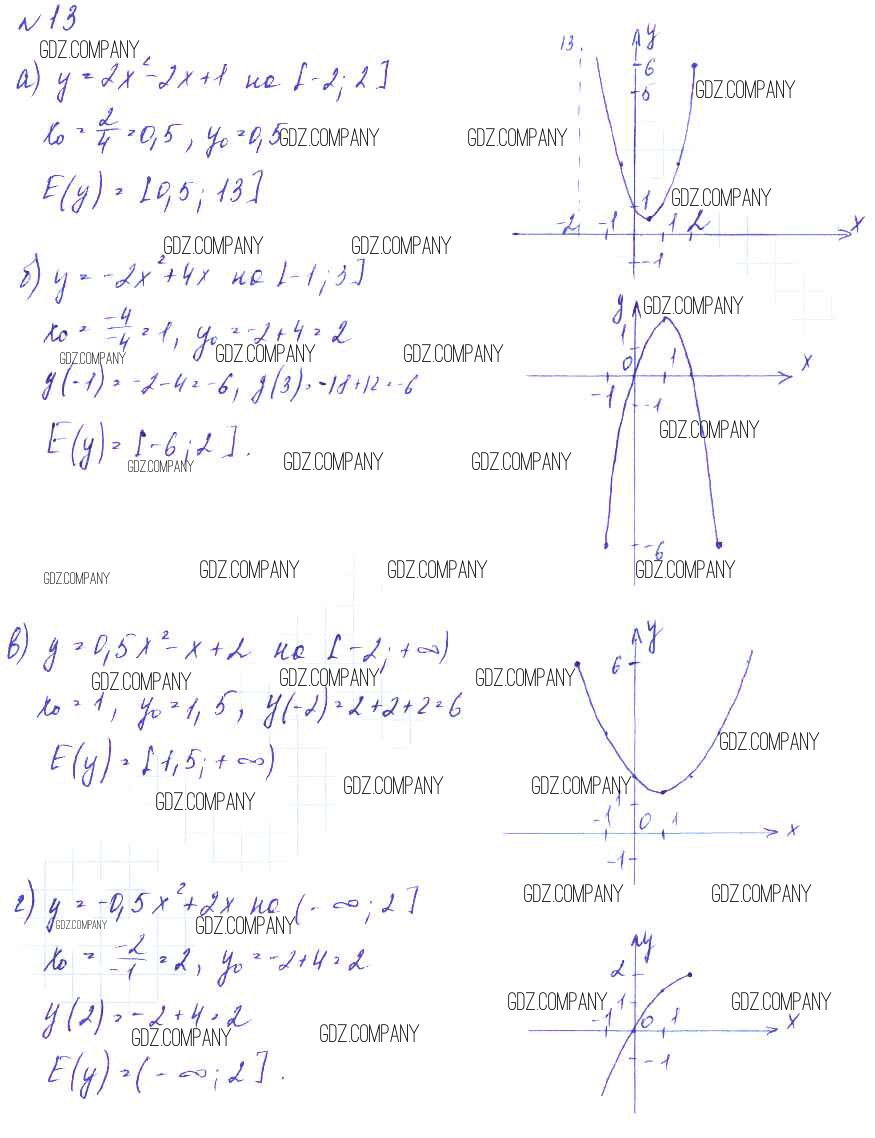 №13
GDZ.COMPANY
а) y = 2x² - 2x + 1 на [-2; 2]
GDZ.COMPANY
x₀ = 2/4 = 0,5, y₀ = 0,5
GDZ.COMPANY GDZ.COMPANY
E(y) = [0,5; 13]
GDZ.COMPANY
13
y
6
5
1
-2 -1 1 2 x
-1
GDZ.COMPANY GDZ.COMPANY
б) y = -2x² + 4x на [-1; 3]
GDZ.COMPANY
x₀ = -4/-4 = 1, y₀ = -2 + 4 = 2
GDZ.COMPANY GDZ.COMPANY GDZ.COMPANY
y(-1) = -2 - 4 = -6, y(3) = -18 + 12 = -6
GDZ.COMPANY
E(y) = [-6; 2].
GDZ.COMPANY GDZ.COMPANY GDZ.COMPANY
y
1
0 1 x
-1
-1
-6
GDZ.COMPANY GDZ.COMPANY GDZ.COMPANY GDZ.COMPANY
в) y = 0,5x² - x + 2 на [-2; +∞)
GDZ.COMPANY GDZ.COMPANY GDZ.COMPANY
x₀ = 1, y₀ = 1,5, y(-2) = 2 + 2 + 2 = 6
GDZ.COMPANY
E(y) = [1,5; +∞)
GDZ.COMPANY GDZ.COMPANY GDZ.COMPANY
y
6
1
-1 0 1 x
-1
GDZ.COMPANY GDZ.COMPANY
г) y = -0,5x² + 2x на (-∞; 2]
GDZ.COMPANY GDZ.COMPANY
x₀ = -2/-1 = 2, y₀ = -2 + 4 = 2
GDZ.COMPANY GDZ.COMPANY
y(2) = -2 + 4 = 2
GDZ.COMPANY GDZ.COMPANY
E(y) = (-∞; 2].
y
2
1
-1 0 1 x
-1